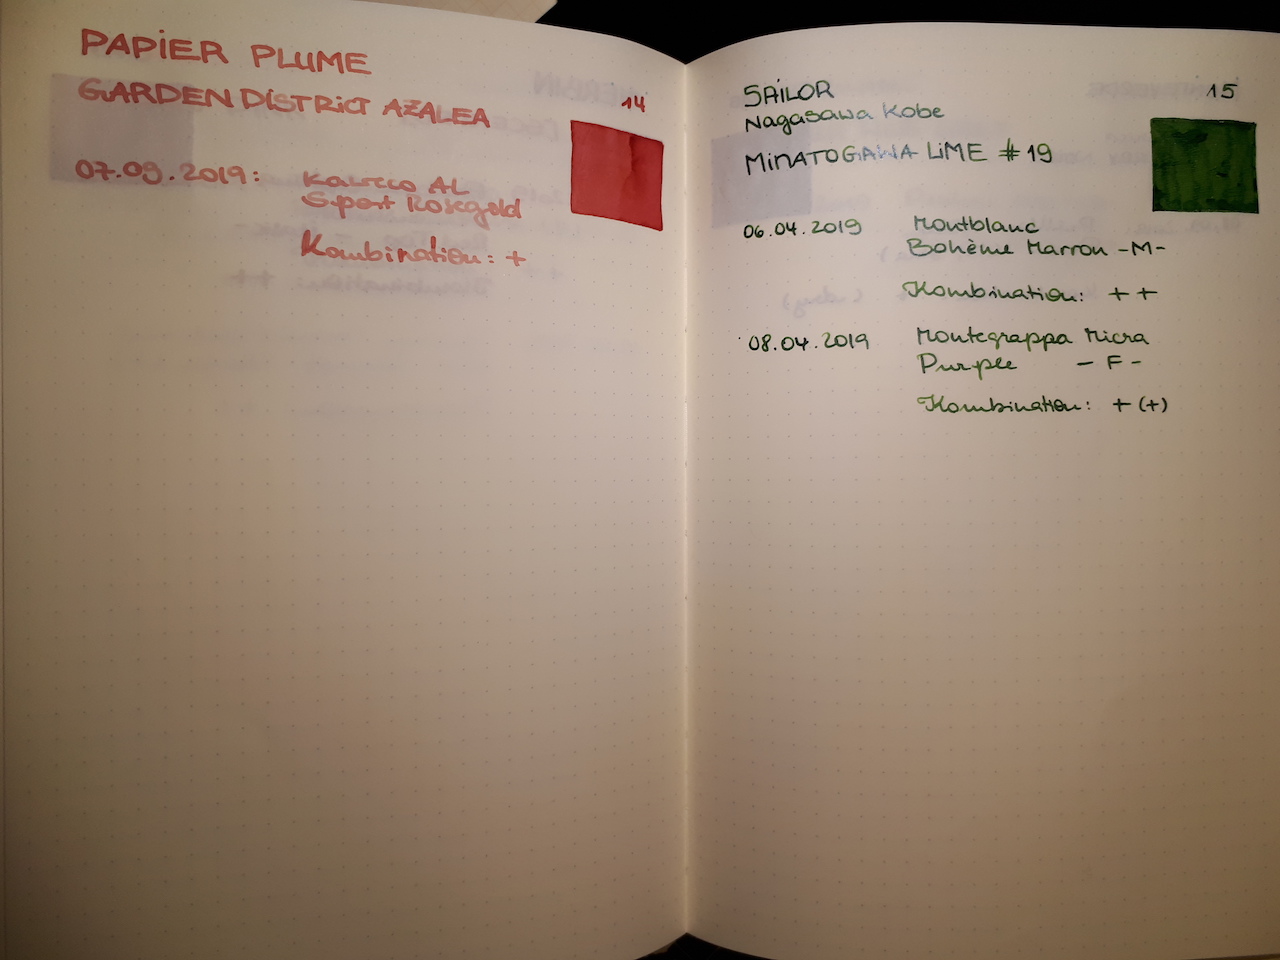 PAPiER PLUME
GARDEN DiSTRiCT AZALEA
14
07.09.2019: Kaweco AL
Sport Rosegold
Kombination: +
SAiLOR
15
Nagasawa Kobe
MiNATOGAWA LiME #19
06.04.2019 Montblanc
Bohème Marron -M-
Kombination: ++
08.04.2019 Montegrappa Micra
Purple - F -
Kombination: + (+)